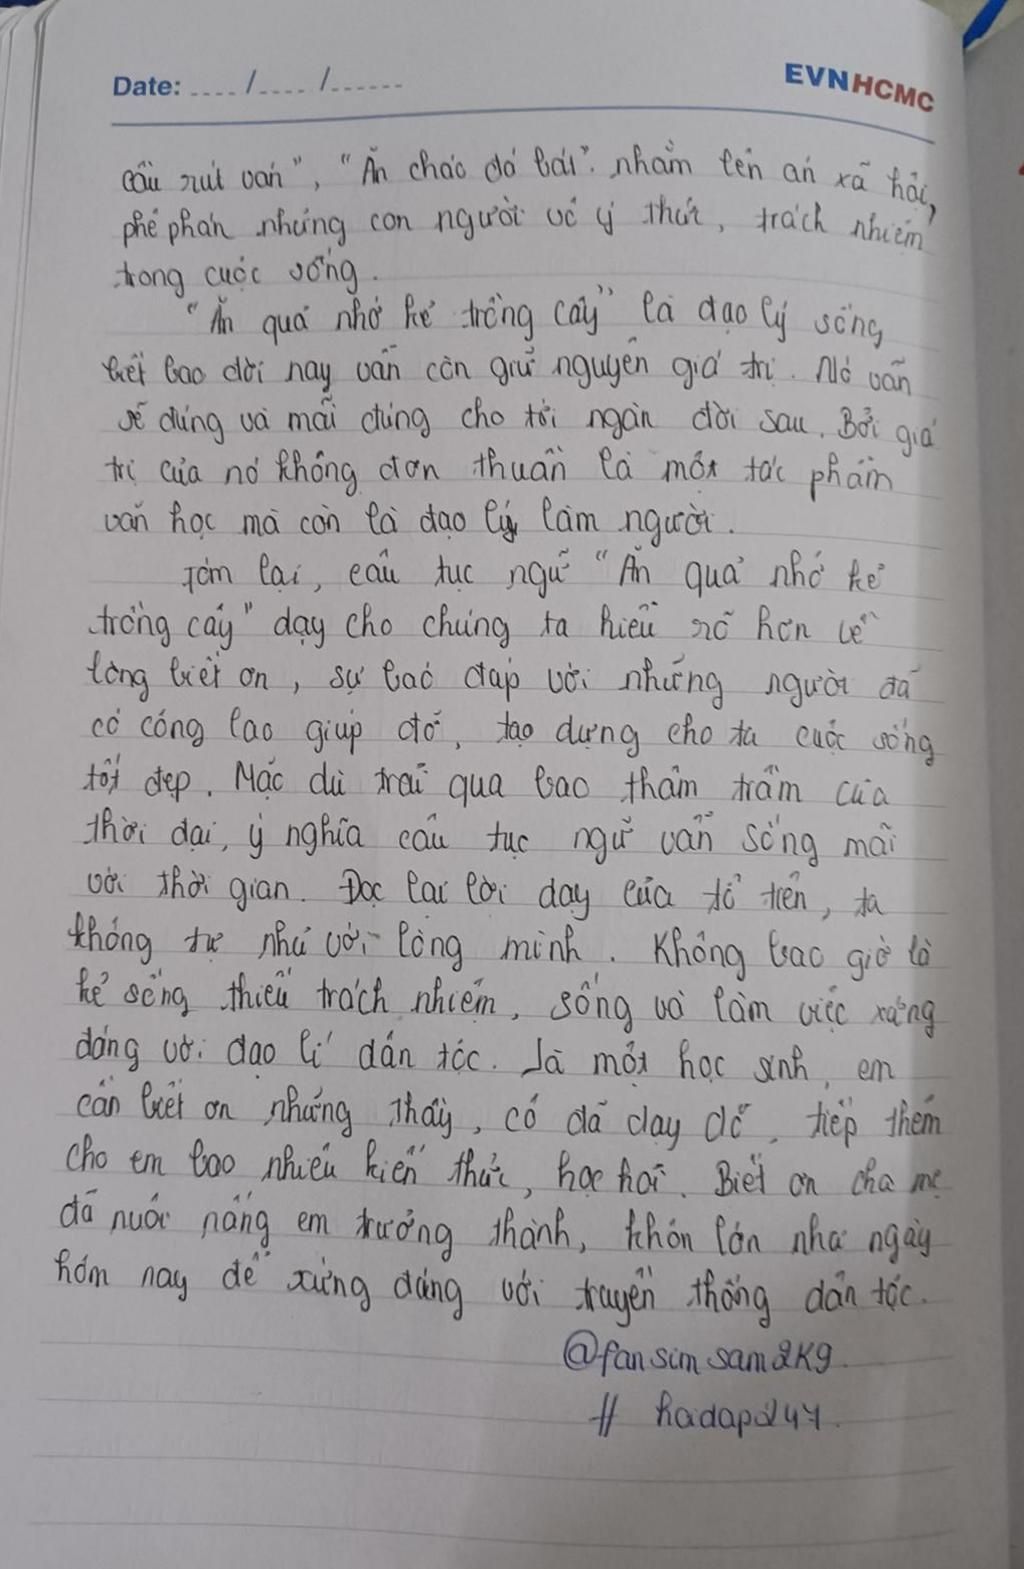 Date: ..../..../......
EVNHCMC
cầu rút ván", "Ăn cháo đá bát". nhằm lên án xã hội,
phê phán những con người vô ý thức, trách nhiệm
trong cuộc sống.
"Ăn quả nhớ kẻ trồng cây" là đạo lý sống
biết bao đời nay vẫn còn giữ nguyên giá trị. Nó vẫn
sẽ đúng và mãi đúng cho tới ngàn đời sau. Bởi giá
trị của nó không đơn thuần là một tác phẩm
văn học mà còn là đạo lý làm người.
Tóm lại, câu tục ngữ "Ăn quả nhớ kẻ
trồng cây" dạy cho chúng ta hiểu rõ hơn về
lòng biết ơn, sự báo đáp với những người đã
có công lao giúp đỡ, tạo dựng cho ta cuộc sống
tốt đẹp. Mặc dù trải qua bao thăm trầm của
thời đại, ý nghĩa câu tục ngữ vẫn sống mãi
với thời gian. Đọc lại lời dạy của tổ tiên, ta
không tự nhủ với lòng mình. Không bao giờ là
kẻ sống thiếu trách nhiệm, sống và làm việc xứng
đáng với đạo lí dân tộc. Là một học sinh, em
cần biết ơn những thầy, cô đã dạy dỗ, tiếp thêm
cho em bao nhiêu kiến thức, học hỏi. Biết ơn cha mẹ
đã nuôi nấng em trưởng thành, khôn lớn như ngày
hôm nay để xứng đáng với truyền thống dân tộc.
@fansimsam2k9
# hadap247.